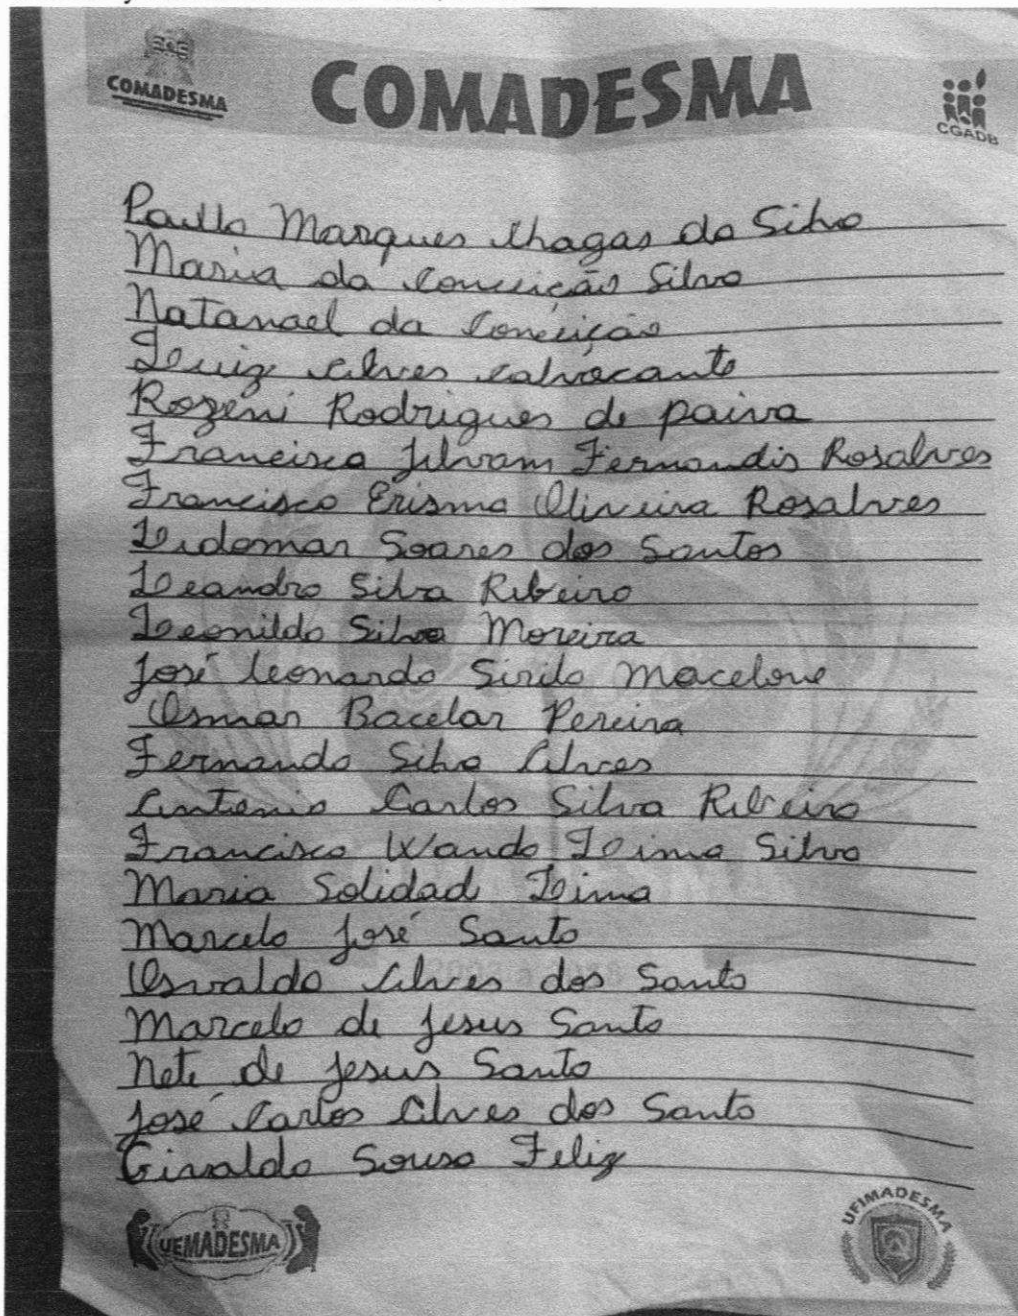 COMADESMA
COMADESMA
CGADB
Paullo Marques Chagas da Silva
Maria da Conceição Silva
Natanael da Conceição
Luiz Alves Calvacante
Rozeni Rodrigues de paiva
Francisca Jilvam Fernandis Rosalves
Francisco Erisma Oliveira Rosalves
Lidomar Soares dos Santos
Leandro Silva Ribeiro
Leonildo Silva Moreira
José Leonardo Sirilo Macelone
Osmar Bacelar Pereira
Fernando Silva Alves
Antonio Carlos Silva Ribeiro
Francisco Wando Lima Silva
Maria Solidad Lima
Marcelo José Santo
Osvaldo Alves dos Santo
Marcelo de Jesus Santo
Nete de Jesus Santo
José Carlos Alves dos Santo
Givaldo Sousa Feliz
UEMADESMA
UFIMADESMA